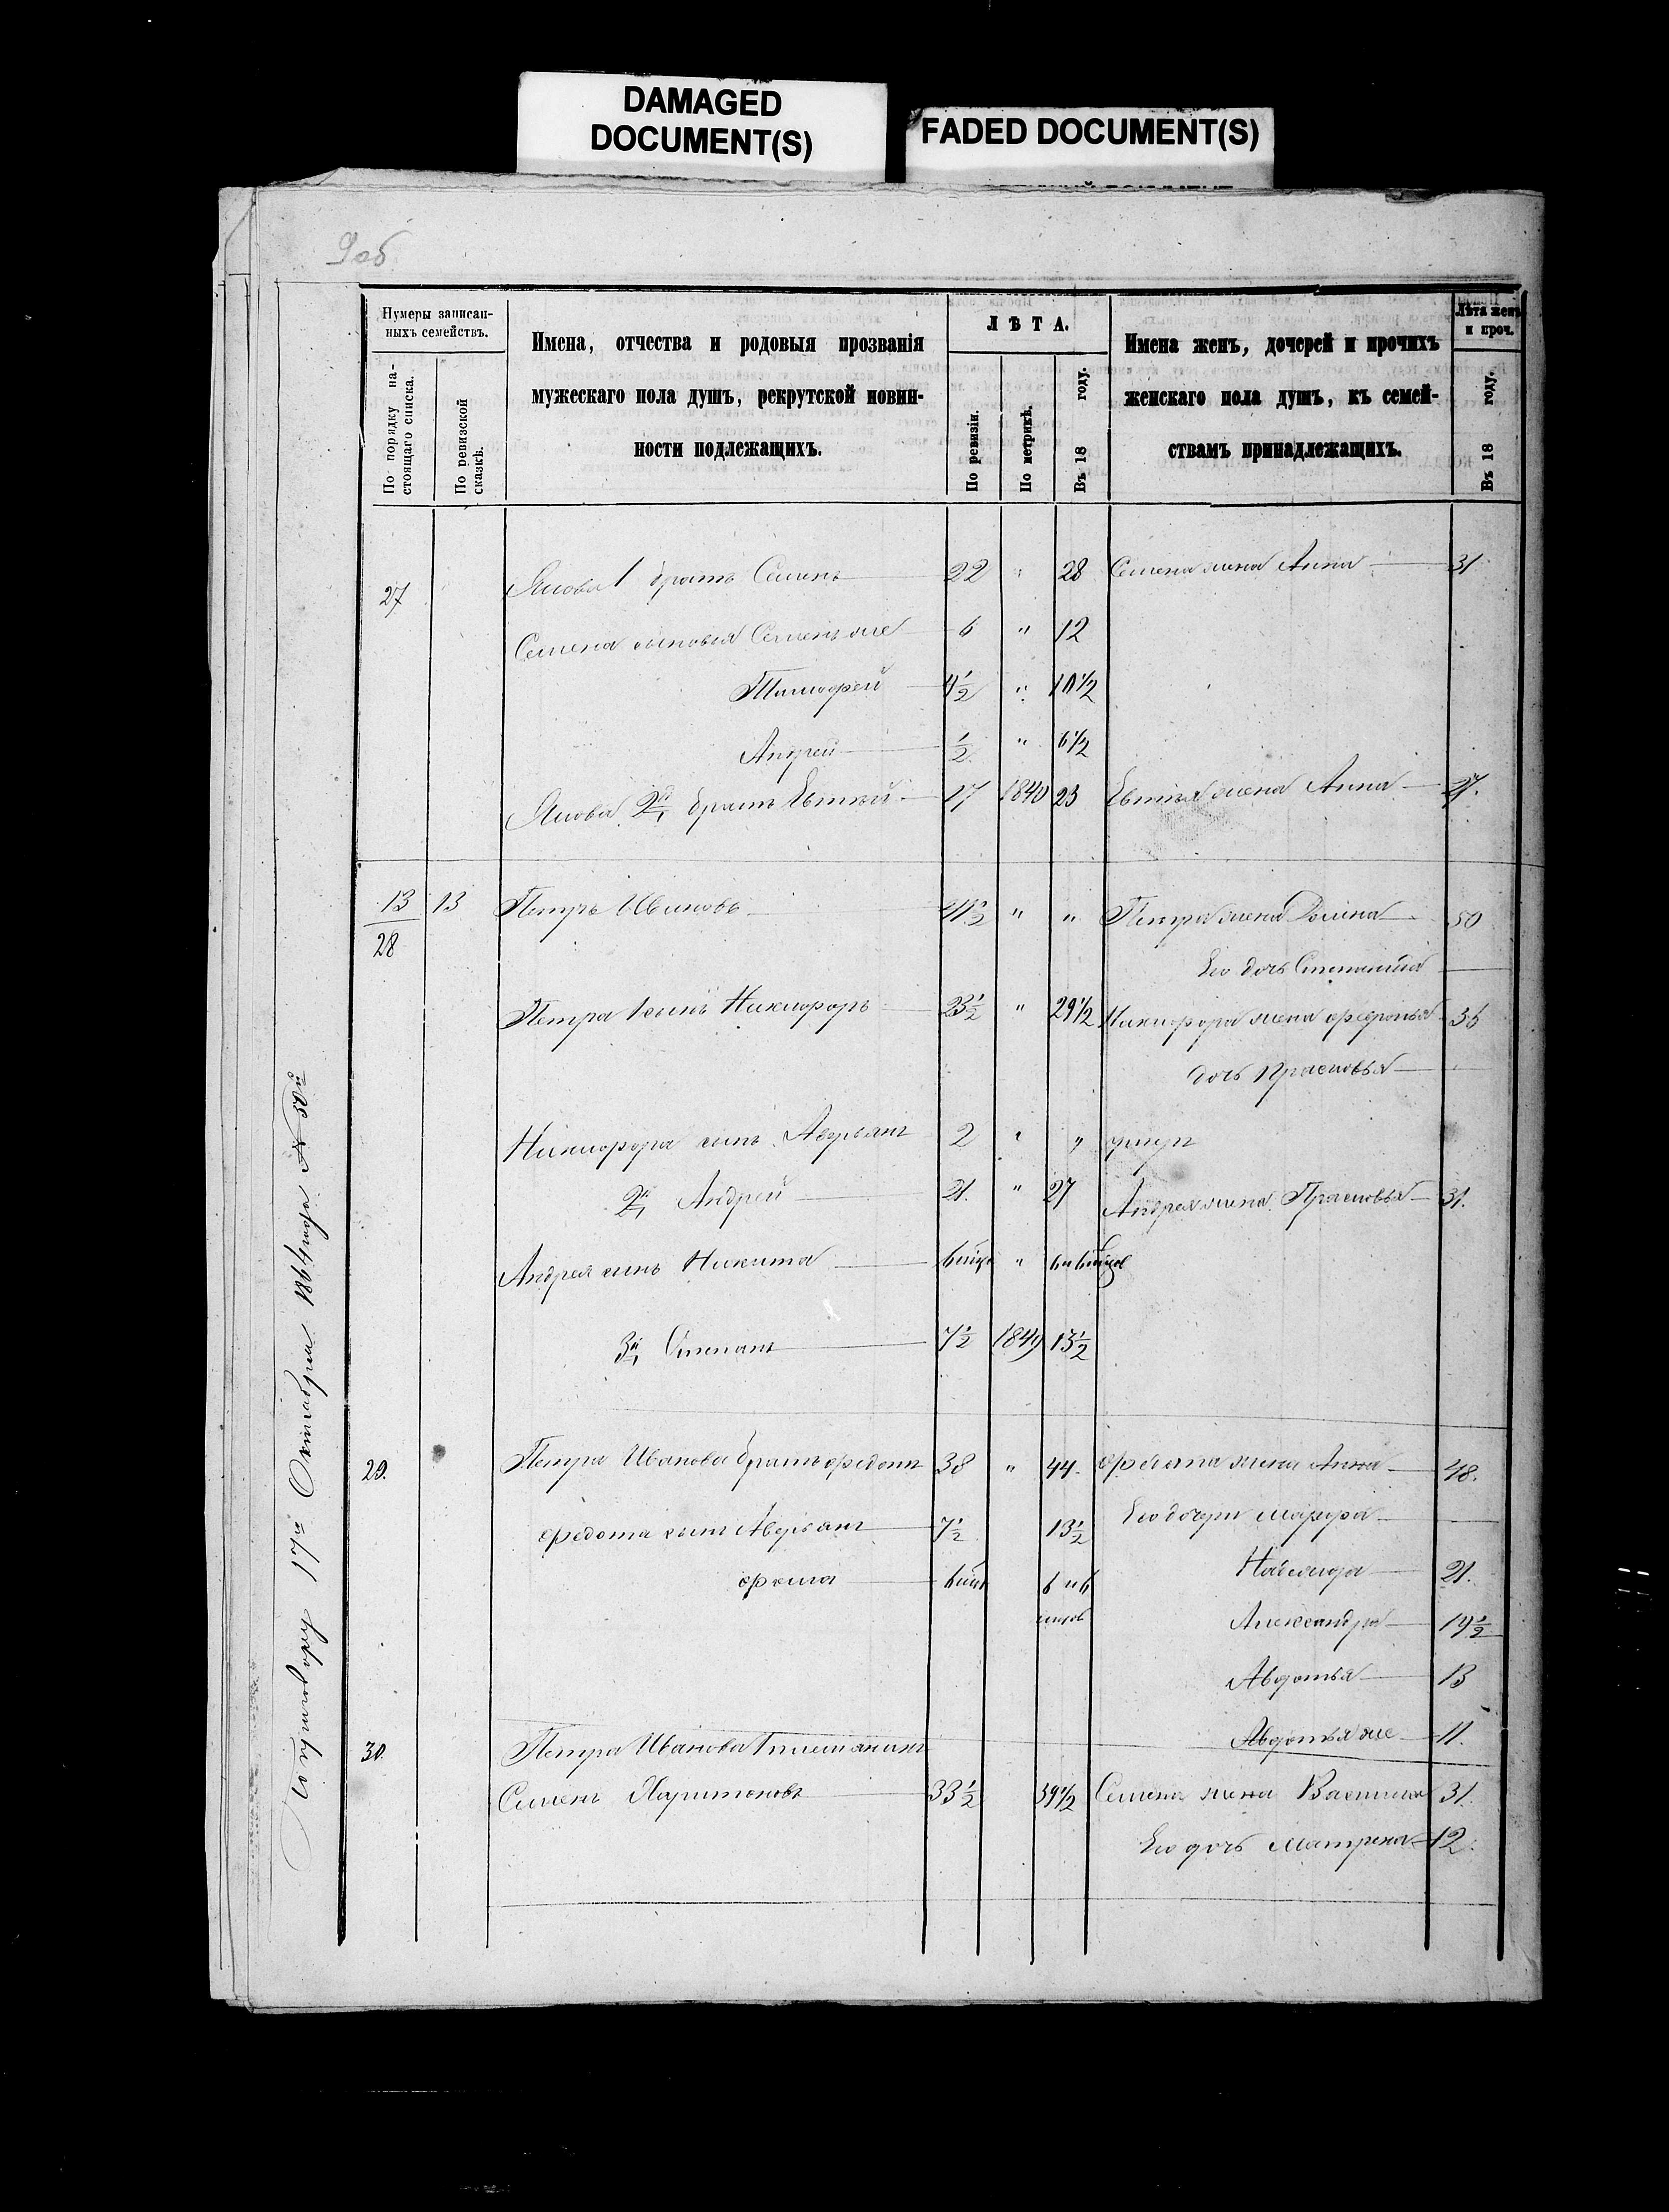 DAMAGED
DOCUMENT(S)
FADED DOCUMENT(S)
9об
Нумеры записан-
ныхъ семействъ.
По порядку на-
стоящаго списка.
По ревизской
сказкѣ.
Имена, отчества и родовыя прозванія
мужескаго пола душъ, рекрутской повин-
ности подлежащихъ.
ЛѢТА.
По ревизіи.
По метрикѣ.
Въ 18 году.
Имена женъ, дочерей и прочихъ
женскаго пола душъ, къ семей-
ствамъ принадлежащихъ.
Лѣта женъ
и проч.
Въ 18 году.
27 Якова 1 братъ Семенъ 22 " 28 Семена жена Анна 31
Семена сыновья Семенъ же 6 " 12
Тимофей 4½ " 10½
Андрей ½ " 6½
Якова 2й братъ Евтей 17 1840 23 Евтея жена Анна 27.
13 13 Петръ Ивановъ 41½ " " Петра жена 50
28 Его дочь Степанида
Петра 1 сынъ Никифоръ 23½ " 29½ Никифора жена Ѳ 36
дочь Прасковья
Никифора сынъ Аверьянъ 2 " " умеръ
2й Андрей 21. " 27 Андрея жена Прасковья 31.
Андрея сынъ Никита 6 " 6 и 6
3й Степанъ 7½ 1849 13½
29. Петра Иванова братъ Ѳедотъ 38 " 44. Ѳедота жена Анна 48.
Ѳедота сынъ Аверьянъ 7½ 13½ Его дочери Марфа
Ѳома 6 6 и 6 21.
Александра 19½
Авдотья 13
Авдотья же 11.
30. Петра Иванова племянникъ
Семенъ Харитоновъ 33½ 39½ Семена жена 31.
Его дочь Матрена 12.
17го Октября 1864 года № 50й